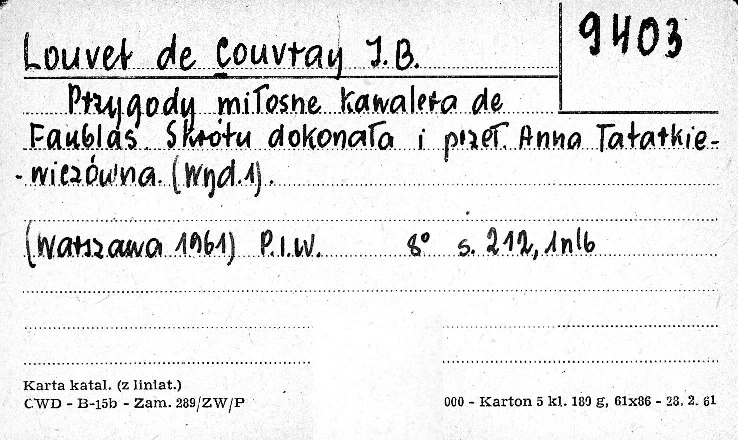 9403
Louvet de Couvray J.B.
Przygody miłosne kawalera de
Faublas. Skrótu dokonała i przeł. Anna Tatarkie-
-wiczówna. (Wyd.1).
(Warszawa 1961) P.I.W. 8° s. 212, 1nlb
Karta katal. (z liniat.)
CWD - B-15b - Zam. 289/ZW/P
000 - Karton 5 kl. 189 g, 61x86 - 23. 2. 61